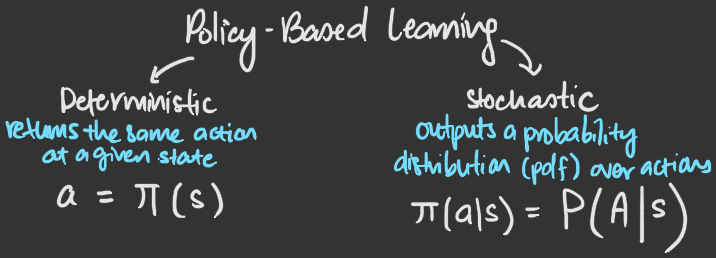 Policy-Based Learning
Deterministic
returns the same action
at a given state
a = π(s)
Stochastic
outputs a probability
distribution (pdf) over actions
π(a|s) = P(A|s)